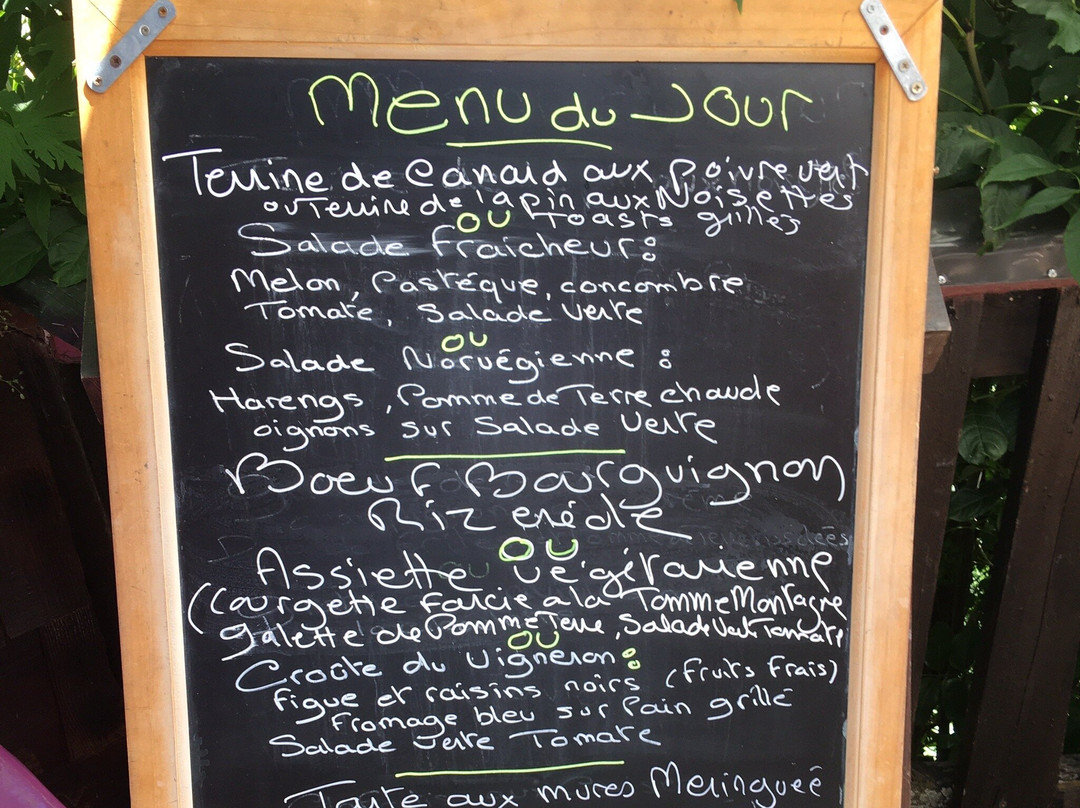 Menu du Jour
Terrine de Canard aux Poivre vert
ou Terrine de lapin aux Noisettes
ou Toasts grillés
Salade fraîcheur :
Melon, Pastéque, concombre
Tomate, Salade verte
ou
Salade Norvégienne :
Harengs, Pomme de Terre chaude
oignons sur Salade verte
Boeuf Bourguignon
Riz créole
ou
Assiette végétarienne
(Courgette farcie a la Tomme Montagne
galette de Pomme Terre, Salade verte Tomate
ou
Croûte du Vigneron :
figue et raisins noirs (fruits frais)
fromage bleu sur Pain grillé
Salade verte Tomate
Tarte aux mures Meringuée